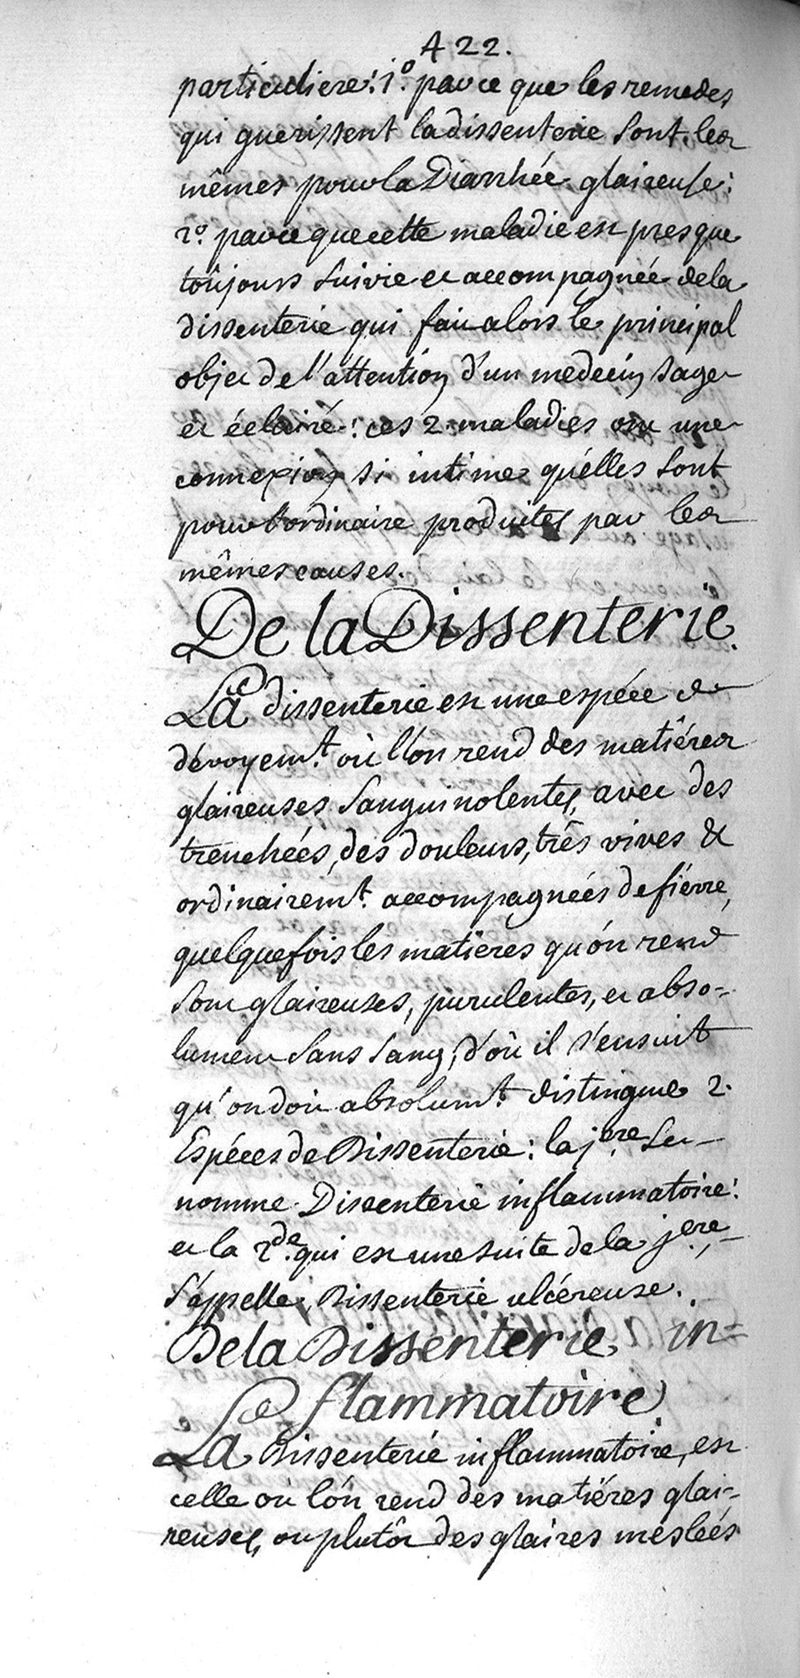 422.
particuliere: 1.º parce que les remedes
qui guerissent la dissenterie sont les
mêmes pour la Diarrhée glaireuse:
2.º parce que cette maladie est presque
toûjours suivie et accompagnée de la
dissenterie qui fait alors le principal
objet de l'attention d'un medecin sage
et éclairé: ces 2. maladies ont une
connexion si intime qu'elles sont
pour l'ordinaire produites par les
mêmes causes.
De la Dissenterie.
La dissenterie est une espéce de
dévoyem.t où l'on rend des matiéres
glaireuses sanguinolentes, avec des
trenchées, des douleurs, très vives &
ordinairem.t accompagnées de fiévre,
quelquefois les matieres qu'on rend
sont glaireuses, purulentes, et abso-
lument sans sang, d'où il s'ensuit
qu'on doit absolum.t distinguer 2.
Espéces de Dissenterie: la 1.ere se
nomme Dissenterie inflammatoire:
et la 2.de qui est une suite de la 1.ere,
s'appelle, Dissenterie ulcéreuse.
De la Dissenterie in=
flammatoire
La Dissenterie inflammatoire, est
celle où l'on rend des matiéres glai-
reuses, ou plutôt des glaires meslées